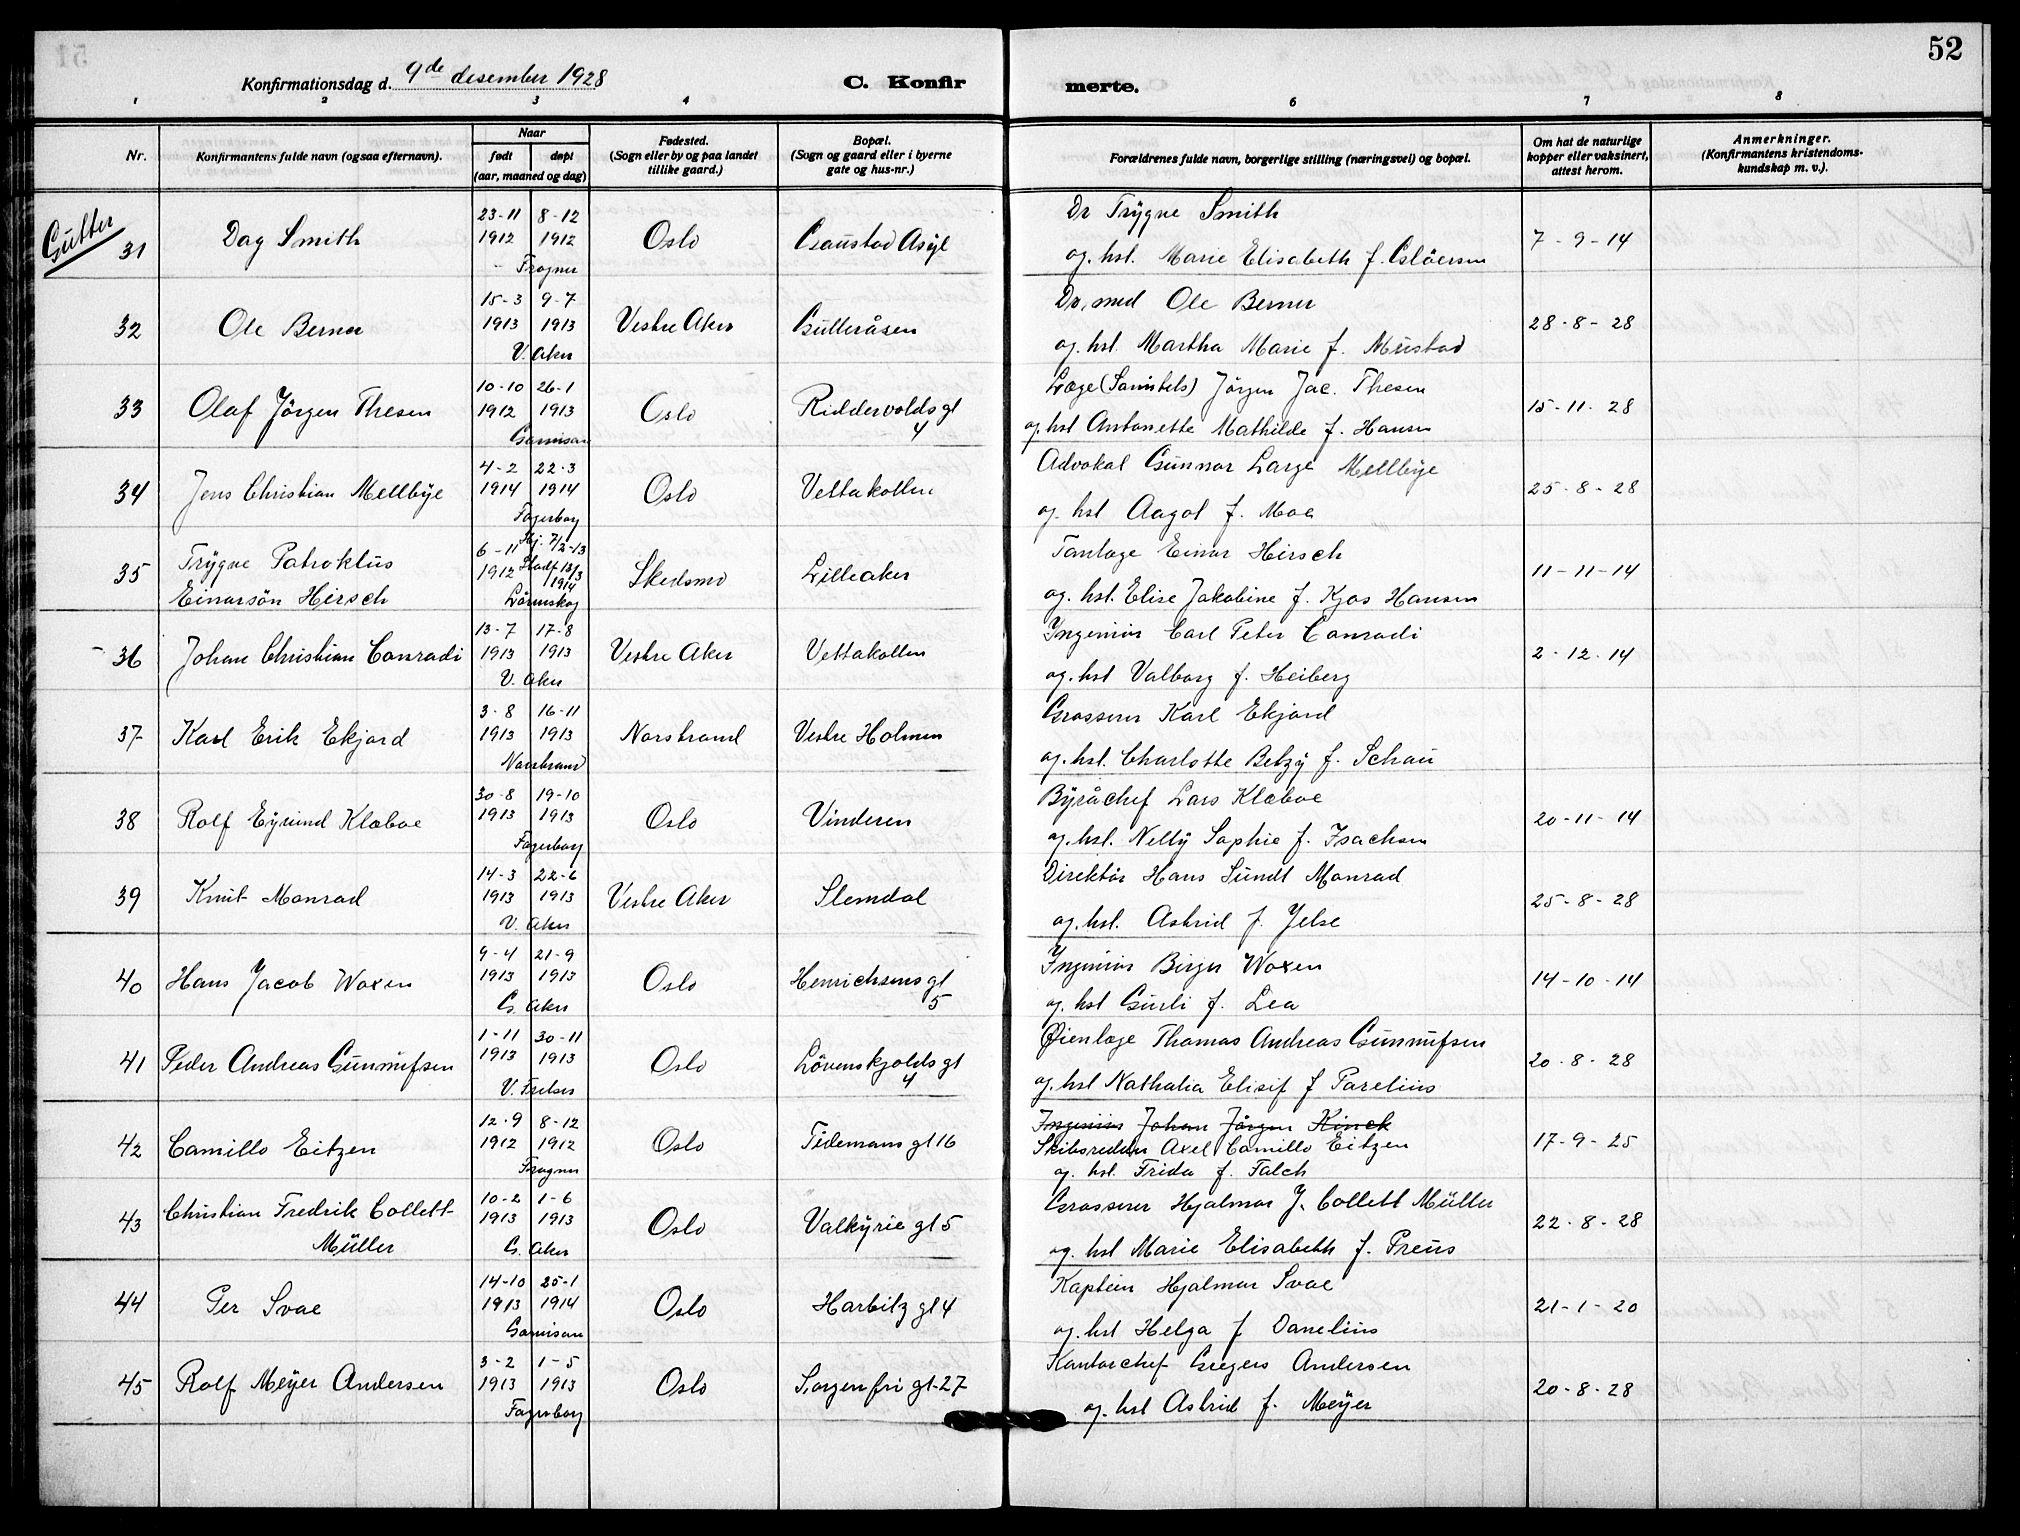 52
Konfirmationsdag d. 9de desember 1928
C. Konfirmerte.
1 2 3 4 6 7 8
Nr.
Konfirmantens fulde navn (ogsaa efternavn).
Naar
født døpt
(aar, maaned og dag)
Fødested.
(Sogn eller by og paa landet
tillike gaard.)
Bopæl.
(Sogn og gaard eller i byerne
gate og hus-nr.)
Forældrenes fulde navn, borgerlige stilling (næringsvei) og bopæl.
Om hat de naturlige
kopper eller vaksinert,
attest herom.
Anmerkninger.
(Konfirmantens kristendoms-
kundskap m. v.).
Gutter
31 Dag Smith 23-11 1912 8-12 1912 Frogner Oslo Gaustad Asyl
Dr Trygve Smith
og. hst. Marie Elisabeth f. Clöersen
7-9-14
32 Ole Berner 15-3 1913 9-7 1913 V. Aker Vestre Aker Gulleråsen
Dr. med Ole Berner
og. hst. Martha Marie f. Mustad
28-8-28
33 Olaf Jörgen Thesen 10-10 1912 26-1 1913 Garnison Oslo Riddervolds gt 4
Læge Jörgen Jac. Thesen
og hst Antonette Mathilde f. Hansen
15-11-28
34 Jens Christian Mellbye 4-2 1914 22-3 1914 Fagerborg Oslo Vettakollen
Advokat Gunnar Large Mellbye
og. hst Aagot f. Moe
25-8-28
35 Trygve Patroklus
Einarsön Hirsch 6-11 1912 Hj. 7/2-13 Stadf 13/3 1914 Lörenskog Skedsmo Lilleaker
Tanlæge Einar Hirsch
og. hst. Elise Jakobine f. Kjos Hansen
11-11-14
36 Johan Christian Conradi 13-7 1913 17-8 1913 V. Aker Vestre Aker Vettakollen
Ingeniör Carl Peter Conradi
og. hst Valborg f. Heiberg
2-12-14
37 Karl Erik Ekjord 3-8 1913 16-11 1913 Norstrand Norstrand Vestre Holmen
Grosserer Karl Ekjord
og. hst. Charlotte Betzy f. Schau
38 Rolf Eyvind Klæboe 30-8 1913 19-10 1913 Fagerborg Oslo Vinderen
Byråchef Lars Klæboe
og. hst. Nelly Sophie f. Isachsen
20-11-14
39 Knut Monrad 14-3 1913 22-6 1913 V. Aker Vestre Aker Slemdal
Direktör Hans Sundt Monrad
og. hst. Astrid f. Jelse
25-8-28
40 Hans Jacob Woxen 9-4 1913 21-9 1913 G. Aker Oslo Henrichsens gt 5
Ingeniör Birger Woxen
og. hst Gurli f. Lea
14-10-14
41 Peder Andreas Gunnufsen 1-11 1913 30-11 1913 V. Frelser Oslo Lövenskjolds gt 4
Øienlæge Thomas Andreas Gunnufsen
og. hst Nathalia Elisif f Parelius
20-8-28
42 Camillo Eitzen 12-9 1912 8-12 1912 Frogner Oslo Tidemans gt 16
Ingeniör Johan Jörgen Kinck
Skibsreder Axel Camillo Eitzen
og. hst. Frida f. Falch
17-9-25
43 Christian Fredrik Collett-
Müller 10-2 1913 1-6 1913 G. Aker Oslo Valkyrie gt 5
Grosserer Hjalmar J. Collett Müller
og. hst Marie Elisabeth f. Preus
22-8-28
44 Per Svae 14-10 1913 25-1 1914 Garnison Oslo Harbitz gt 4
Kaptein Hjalmar Svae
og. hst Helga f Danelius
21-1-20
45 Rolf Meyer Andersen 3-2 1913 1-5 1913 Fagerborg Oslo Sorgenfri gt-27
Kontorchef Gregers Andersen
og. hst Astrid f. Meyer
20-8-28